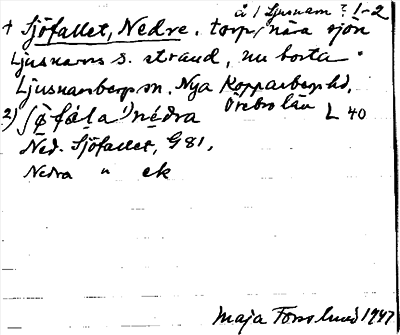 å / Ljusnarn ? 1-2
+ Sjöfallet, Nedre. torp, nära sjön
Ljusnarns s. strand, nu borta.
Ljusnarsberg sn. Nya Kopparberg hd.
Örebro län L 40
2) ʃø̀fála 1) nédra
Ned. Sjöfallet, G 81,
Nedra " ek
Maja Forsslund 1947